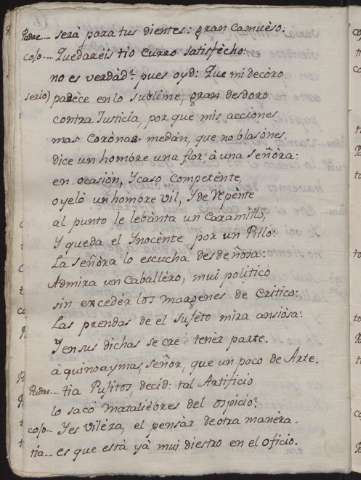 Pedro.... será para tus dientes: gran Camuéso.
cojo... Quedareis tio Curro satisfécho:
no es verdad? pues oyd: Que mi decóro
serio) padece en lo Sublíme, gran desdoro
contra Justicia, por que mis acciones
mas Corònas me dán, que no blasones.
dice un hombre una flor, à una Señóra:
en ocasión, y caso competente,
oyelo un hombre vil, y de repente
al punto le levánta un Caramillo,
Y queda el Inocente por un Pillo:
La Señóra lo escucha desdeñosa:
Admira un Caballéro, mui politico
sin excedér los margenes de Critico:
Las prendas de el Sujeto mira ansiosa:
Y en sus dichas se cre tenér parte.
à quí no ay mas Señor, que un poco de Arte.
Pedro... tia Pujitos decid: tal Artificio
lo sacó Mataliebres del ospicio?
cojo... Y es viléza, el pensár de otra manèra.
tia... es que está yá mui diestro en el oficio.